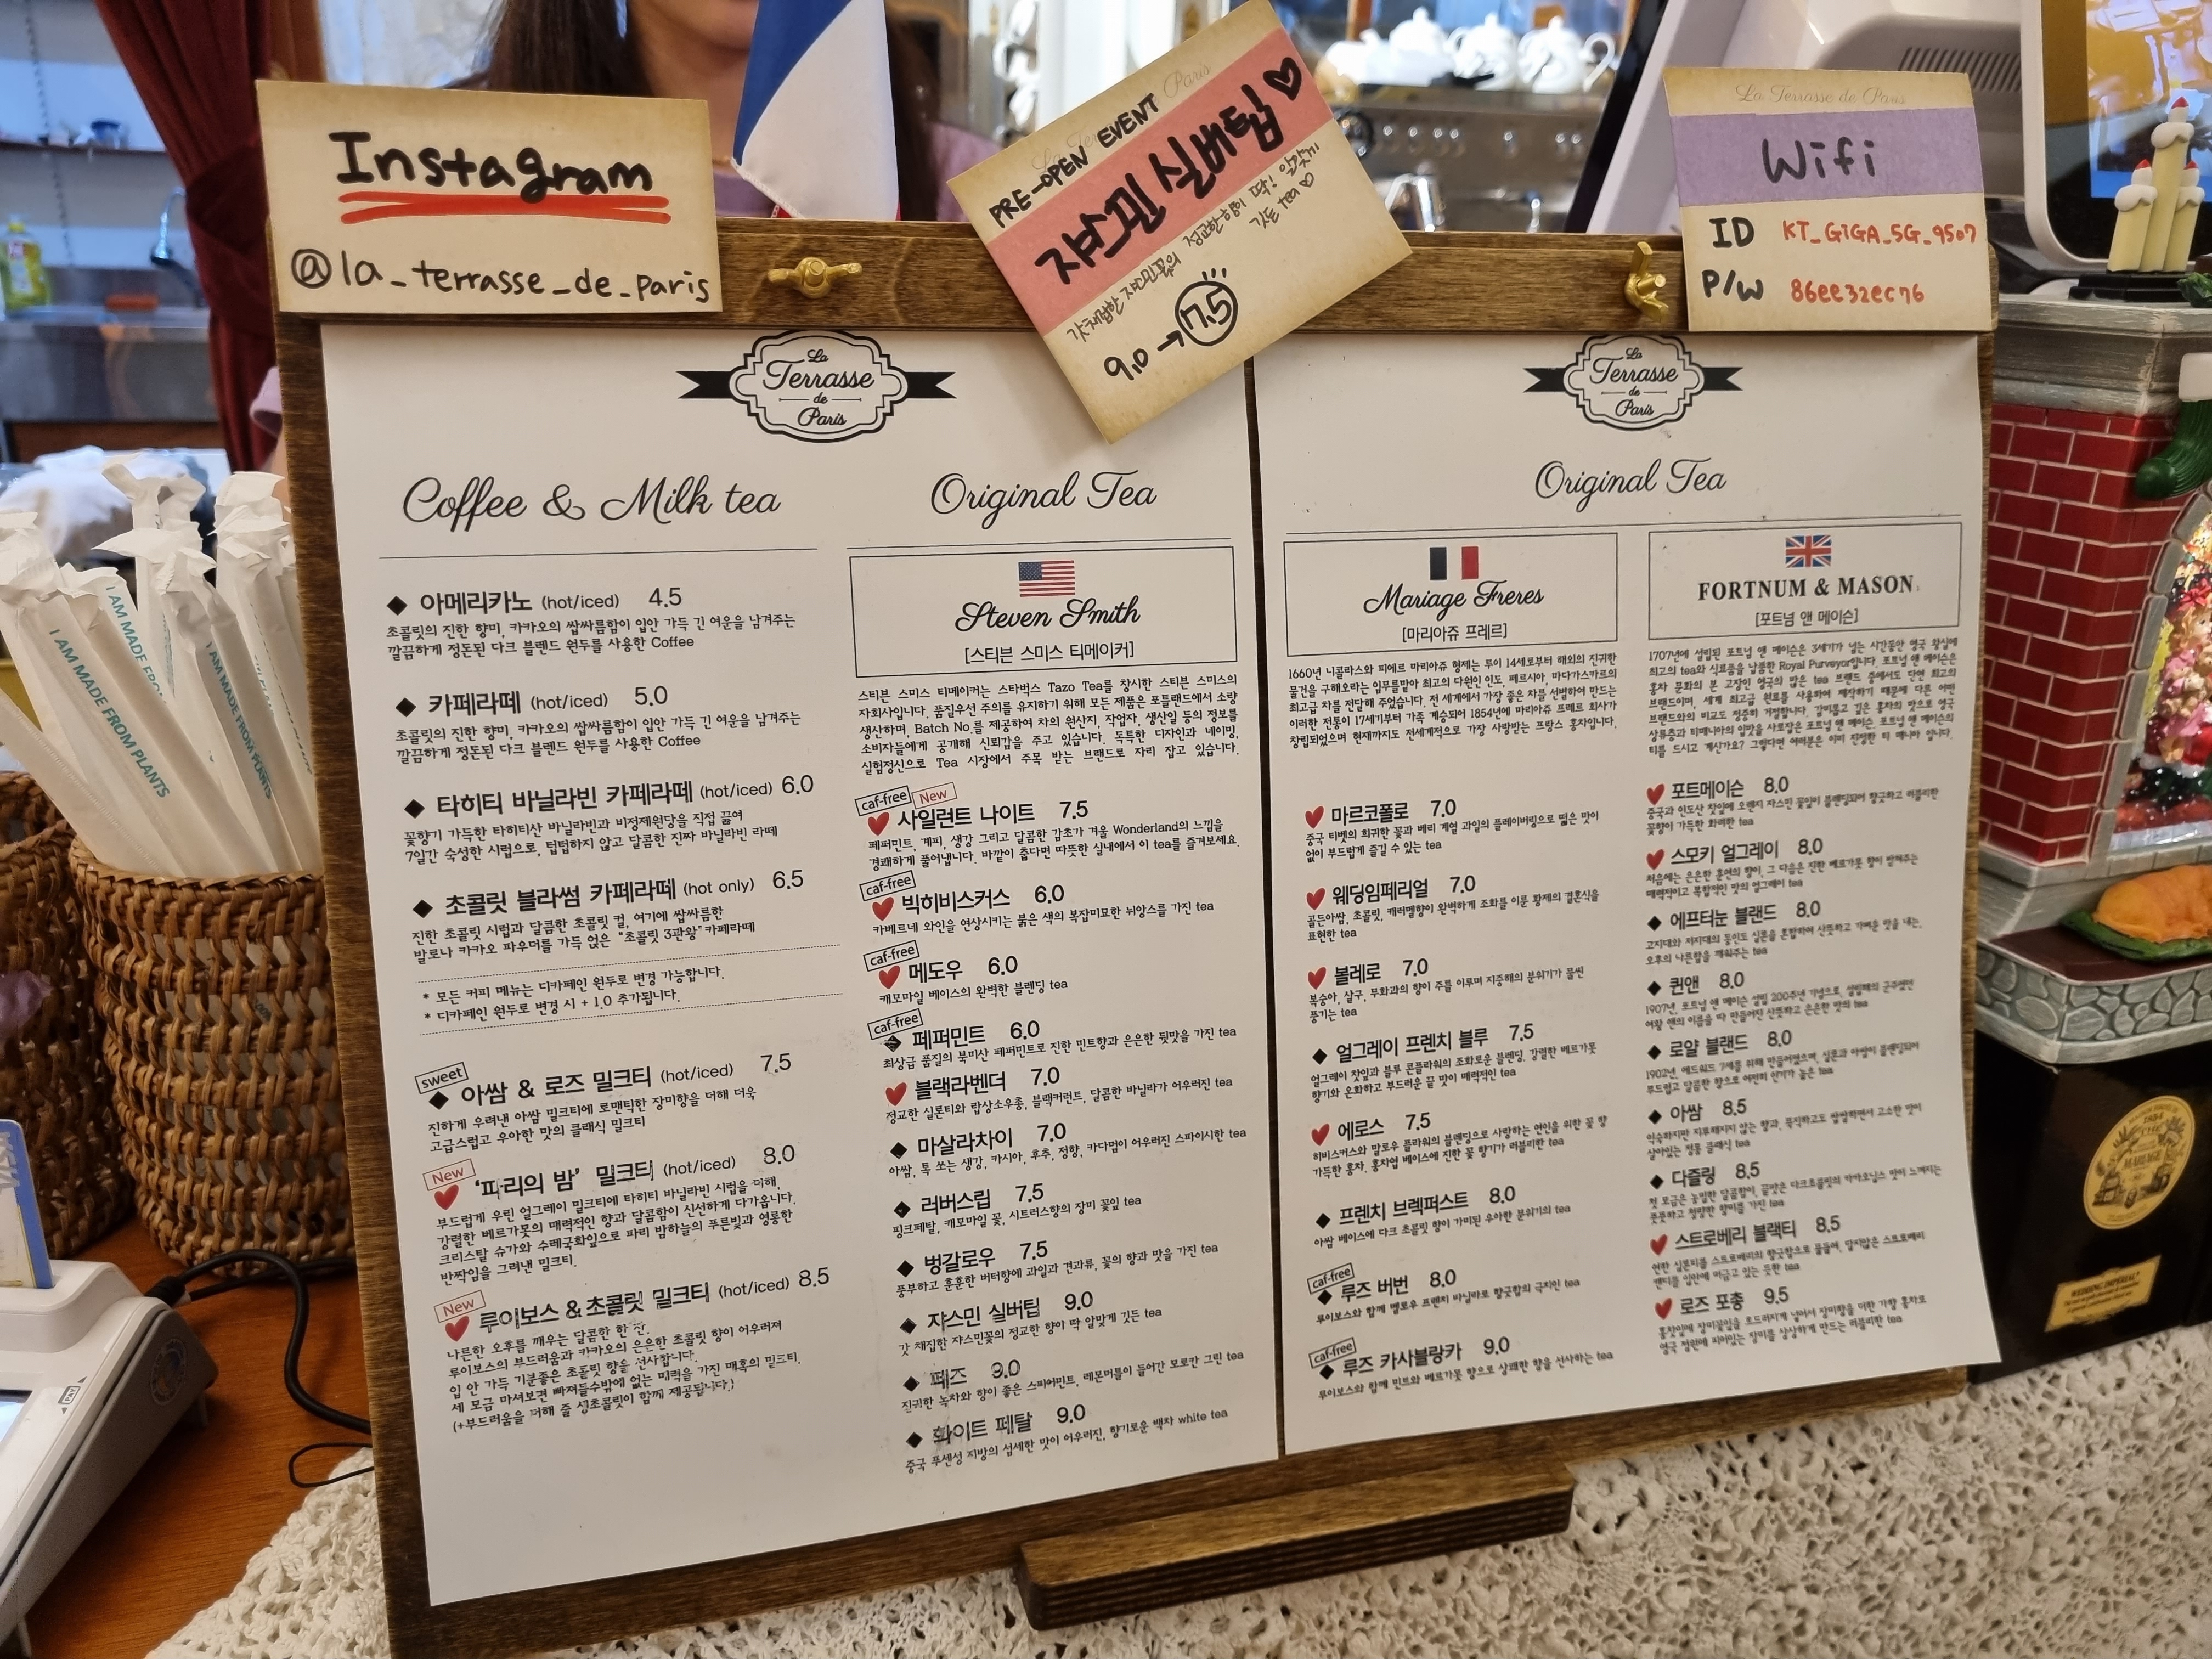 Instagram
@la_terrasse_de_paris
La Terrasse de Paris
PRE-OPEN EVENT
쟈스민 실버팁♡
갓 채집한 쟈스민꽃의
정교한 향이 딱! 알맞게
깃든 tea♡
9.0→7.5
La Terrasse de Paris
Wifi
ID KT_GiGA_5G_9507
P/W 86ee32ec76
I AM MADE FROM PLANTS
I AM MADE FROM PLANTS
La
Terrasse
de
Paris
Coffee & Milk tea
◆ 아메리카노 (hot/iced) 4.5
초콜릿의 진한 향미, 카카오의 쌉싸름함이 입안 가득 긴 여운을 남겨주는
깔끔하게 정돈된 다크 블렌드 원두를 사용한 Coffee
◆ 카페라떼 (hot/iced) 5.0
초콜릿의 진한 향미, 카카오의 쌉싸름함이 입안 가득 긴 여운을 남겨주는
깔끔하게 정돈된 다크 블렌드 원두를 사용한 Coffee
◆ 타히티 바닐라빈 카페라떼 (hot/iced) 6.0
꽃향기 가득한 타히티산 바닐라빈과 비정제원당을 직접 끓여
7일간 숙성한 시럽으로, 텁텁하지 않고 달콤한 진짜 바닐라빈 라떼
◆ 초콜릿 블라썸 카페라떼 (hot only) 6.5
진한 초콜릿 시럽과 달콤한 초콜릿 컬, 여기에 쌉싸름한
발로나 카카오 파우더를 가득 얹은 "초콜릿 3관왕"카페라떼
* 모든 커피 메뉴는 디카페인 원두로 변경 가능합니다.
* 디카페인 원두로 변경 시 + 1.0 추가됩니다.
sweet
◆ 아쌈 & 로즈 밀크티 (hot/iced) 7.5
진하게 우려낸 아쌈 밀크티에 로맨틱한 장미향을 더해 더욱
고급스럽고 우아한 맛의 클래식 밀크티
New
'파리의 밤' 밀크티 (hot/iced) 8.0
부드럽게 우린 얼그레이 밀크티에 타히티 바닐라빈 시럽을 더해,
강렬한 베르가못의 매력적인 향과 달콤함이 신선하게 다가옵니다.
크리스탈 슈가와 수레국화잎으로 파리 밤하늘의 푸른빛과 영롱한
반짝임을 그려낸 밀크티.
New
루이보스 &초콜릿 밀크티 (hot/iced) 8.5
나른한 오후를 깨우는 달콤한 한 잔.
루이보스의 부드러움과 카카오의 은은한 초콜릿 향이 어우러져
입 안 가득 기분좋은 초콜릿 향을 선사합니다.
세 모금 마셔보면 빠져들수밖에 없는 매력을 가진 매혹의 밀크티.
(+부드러움을 더해 줄 생초콜릿이 함께 제공됩니다.)
Original Tea
Steven Smith
[스티븐 스미스 티메이커]
스티븐 스미스 티메이커는 스타벅스 Tazo Tea를 창시한 스티븐 스미스의
자회사입니다. 품질우선 주의를 유지하기 위해 모든 제품은 포틀랜드에서 소량
생산하며, Batch No.를 제공하여 차의 원산지, 작업자, 생산일 등의 정보를
소비자들에게 공개해 신뢰감을 주고 있습니다. 독특한 디자인과 네이밍,
실험정신으로 Tea 시장에서 주목 받는 브랜드로 자리 잡고 있습니다.
caf-free New
사일런트 나이트 7.5
페퍼민트, 계피, 생강 그리고 달콤한 감초가 겨울 Wonderland의 느낌을
경쾌하게 풀어냅니다. 바깥이 춥다면 따뜻한 실내에서 이 tea를 즐겨보세요.
caf-free
빅히비스커스 6.0
카베르네 와인을 연상시키는 붉은 색의 복잡미묘한 뉘앙스를 가진 tea
caf-free
메도우 6.0
캐모마일 베이스의 완벽한 블렌딩 tea
caf-free
◆ 페퍼민트 6.0
최상급 품질의 북미산 페퍼민트로 진한 민트향과 은은한 뒷맛을 가진 tea
블랙라벤더 7.0
정교한 실론티와 랍상소우총, 블랙커런트, 달콤한 바닐라가 어우러진 tea
◆ 마살라차이 7.0
아쌈, 톡 쏘는 생강, 카시아, 후추, 정향, 카다멈이 어우러진 스파이시한 tea
◆ 러버스립 7.5
핑크페탈, 캐모마일 꽃, 시트러스향의 장미 꽃잎 tea
◆ 벙갈로우 7.5
풍부하고 훈훈한 버터향에 과일과 견과류, 꽃의 향과 맛을 가진 tea
◆ 쟈스민 실버팁 9.0
갓 채집한 쟈스민꽃의 정교한 향이 딱 알맞게 깃든 tea
◆ 페즈 9.0
진귀한 녹차와 향이 좋은 스피어민트, 레몬머틀이 들어간 모로칸 그린 tea
◆ 화이트 페탈 9.0
중국 푸센성 지방의 섬세한 맛이 어우러진, 향기로운 백차 white tea
La
Terrasse
de
Paris
Original Tea
Mariage Freres
[마리아쥬 프레르]
1660년 니콜라스와 피에르 마리아쥬 형제는 루이 14세로부터 해외의 진귀한
물건을 구해오라는 임무를맡아 최고의 다원인 인도, 페르시아, 마다가스카르의
최고급 차를 전달해 주었습니다. 전 세계에서 가장 좋은 차를 선별하여 만드는
이러한 전통이 17세기부터 가족 계승되어 1854년에 마리아쥬 프레르 회사가
창립되었으며 현재까지도 전세계적으로 가장 사랑받는 프랑스 홍차입니다.
마르코폴로 7.0
중국 티벳의 희귀한 꽃과 베리 계열 과일의 플레이버링으로 떫은 맛이
없이 부드럽게 즐길 수 있는 tea
웨딩임페리얼 7.0
골든아쌈, 초콜릿, 캐러멜향이 완벽하게 조화를 이룬 황제의 결혼식을
표현한 tea
볼레로 7.0
복숭아, 살구, 무화과의 향이 주를 이루며 지중해의 분위기가 물씬
풍기는 tea
◆ 얼그레이 프렌치 블루 7.5
얼그레이 찻잎과 블루 콘플라워의 조화로운 블렌딩. 강렬한 베르가못
향기와 온화하고 부드러운 끝 맛이 매력적인 tea
에로스 7.5
히비스커스와 말로우 플라워의 블렌딩으로 사랑하는 연인을 위한 꽃 향
가득한 홍차, 홍차엽 베이스에 진한 꽃 향기가 러블리한 tea
◆ 프렌치 브렉퍼스트 8.0
아쌈 베이스에 다크 초콜릿 향이 가미된 우아한 분위기의 tea
caf-free
◆ 루즈 버번 8.0
루이보스와 함께 멜로우 프렌치 바닐라로 향긋함의 극치인 tea
caf-free
◆ 루즈 카사블랑카 9.0
루이보스와 함께 민트와 베르가못 향으로 상쾌한 향을 선사하는 tea
FORTNUM & MASON
[포트넘 앤 메이슨]
1707년에 설립된 포트넘 앤 메이슨은 3세기가 넘는 시간동안 영국 황실에
최고의 tea와 식료품을 납품한 Royal Purveyor입니다. 포트넘 앤 메이슨은
홍차 문화의 본 고장인 영국의 많은 tea 브랜드 중에서도 단연 최고의
브랜드이며, 세계 최고급 원료를 사용하여 제작하기 때문에 다른 어떤
브랜드와의 비교도 정중히 거절합니다. 감미롭고 깊은 홍차의 맛으로 영국
상류층과 티매니아의 입맛을 사로잡은 포트넘 앤 메이슨. 포트넘 앤 메이슨의
티를 드시고 계신가요? 그렇다면 여러분은 이미 진정한 티 매니아 입니다.
포트메이슨 8.0
중국과 인도산 찻잎에 오렌지 쟈스민 꽃잎이 블렌딩되어 향긋하고 러블리한
꽃향이 가득한 화려한 tea
스모키 얼그레이 8.0
처음에는 은은한 훈연의 향이, 그 다음은 진한 베르가못 향이 받쳐주는
매력적이고 복합적인 맛의 얼그레이 tea
◆ 에프터눈 블랜드 8.0
고지대와 저지대의 동인도 실론을 혼합하여 산뜻하고 가벼운 맛을 내는,
오후의 나른함을 깨워주는 tea
◆ 퀸앤 8.0
1907년, 포트넘 앤 메이슨 설립 200주년 기념으로, 설립때의 군주였던
여왕 앤의 이름을 따 만들어진 산뜻하고 은은한 맛의 tea
◆ 로얄 블랜드 8.0
1902년, 에드워드 7세를 위해 만들어졌으며, 실론과 아쌈이 블렌딩되어
부드럽고 달콤한 향으로 여전히 인기가 높은 tea
◆ 아쌈 8.5
익숙하지만 지루해지지 않는 향과, 묵직하고도 쌉쌀하면서 고소한 맛이
살아있는 정통 클래식 tea
◆ 다즐링 8.5
첫 모금은 농밀한 달콤함이, 끝맛은 다크초콜릿의 카카오닙스 맛이 느껴지는
풋풋하고 청량한 향미를 가진 tea
스트로베리 블랙티 8.5
연한 실론티를 스트로베리의 향긋함으로 물들여, 달지않은 스트로베리
캔디를 입안에 머금고 있는 듯한 tea
로즈 포총 9.5
홍찻잎에 장미꽃잎을 흐드러지게 넣어서 장미향을 더한 가향 홍차로
영국 정원에 피어있는 장미를 상상하게 만드는 러블리한 tea
1854
MARIAGE
WEDDING IMPERIAL
PAY